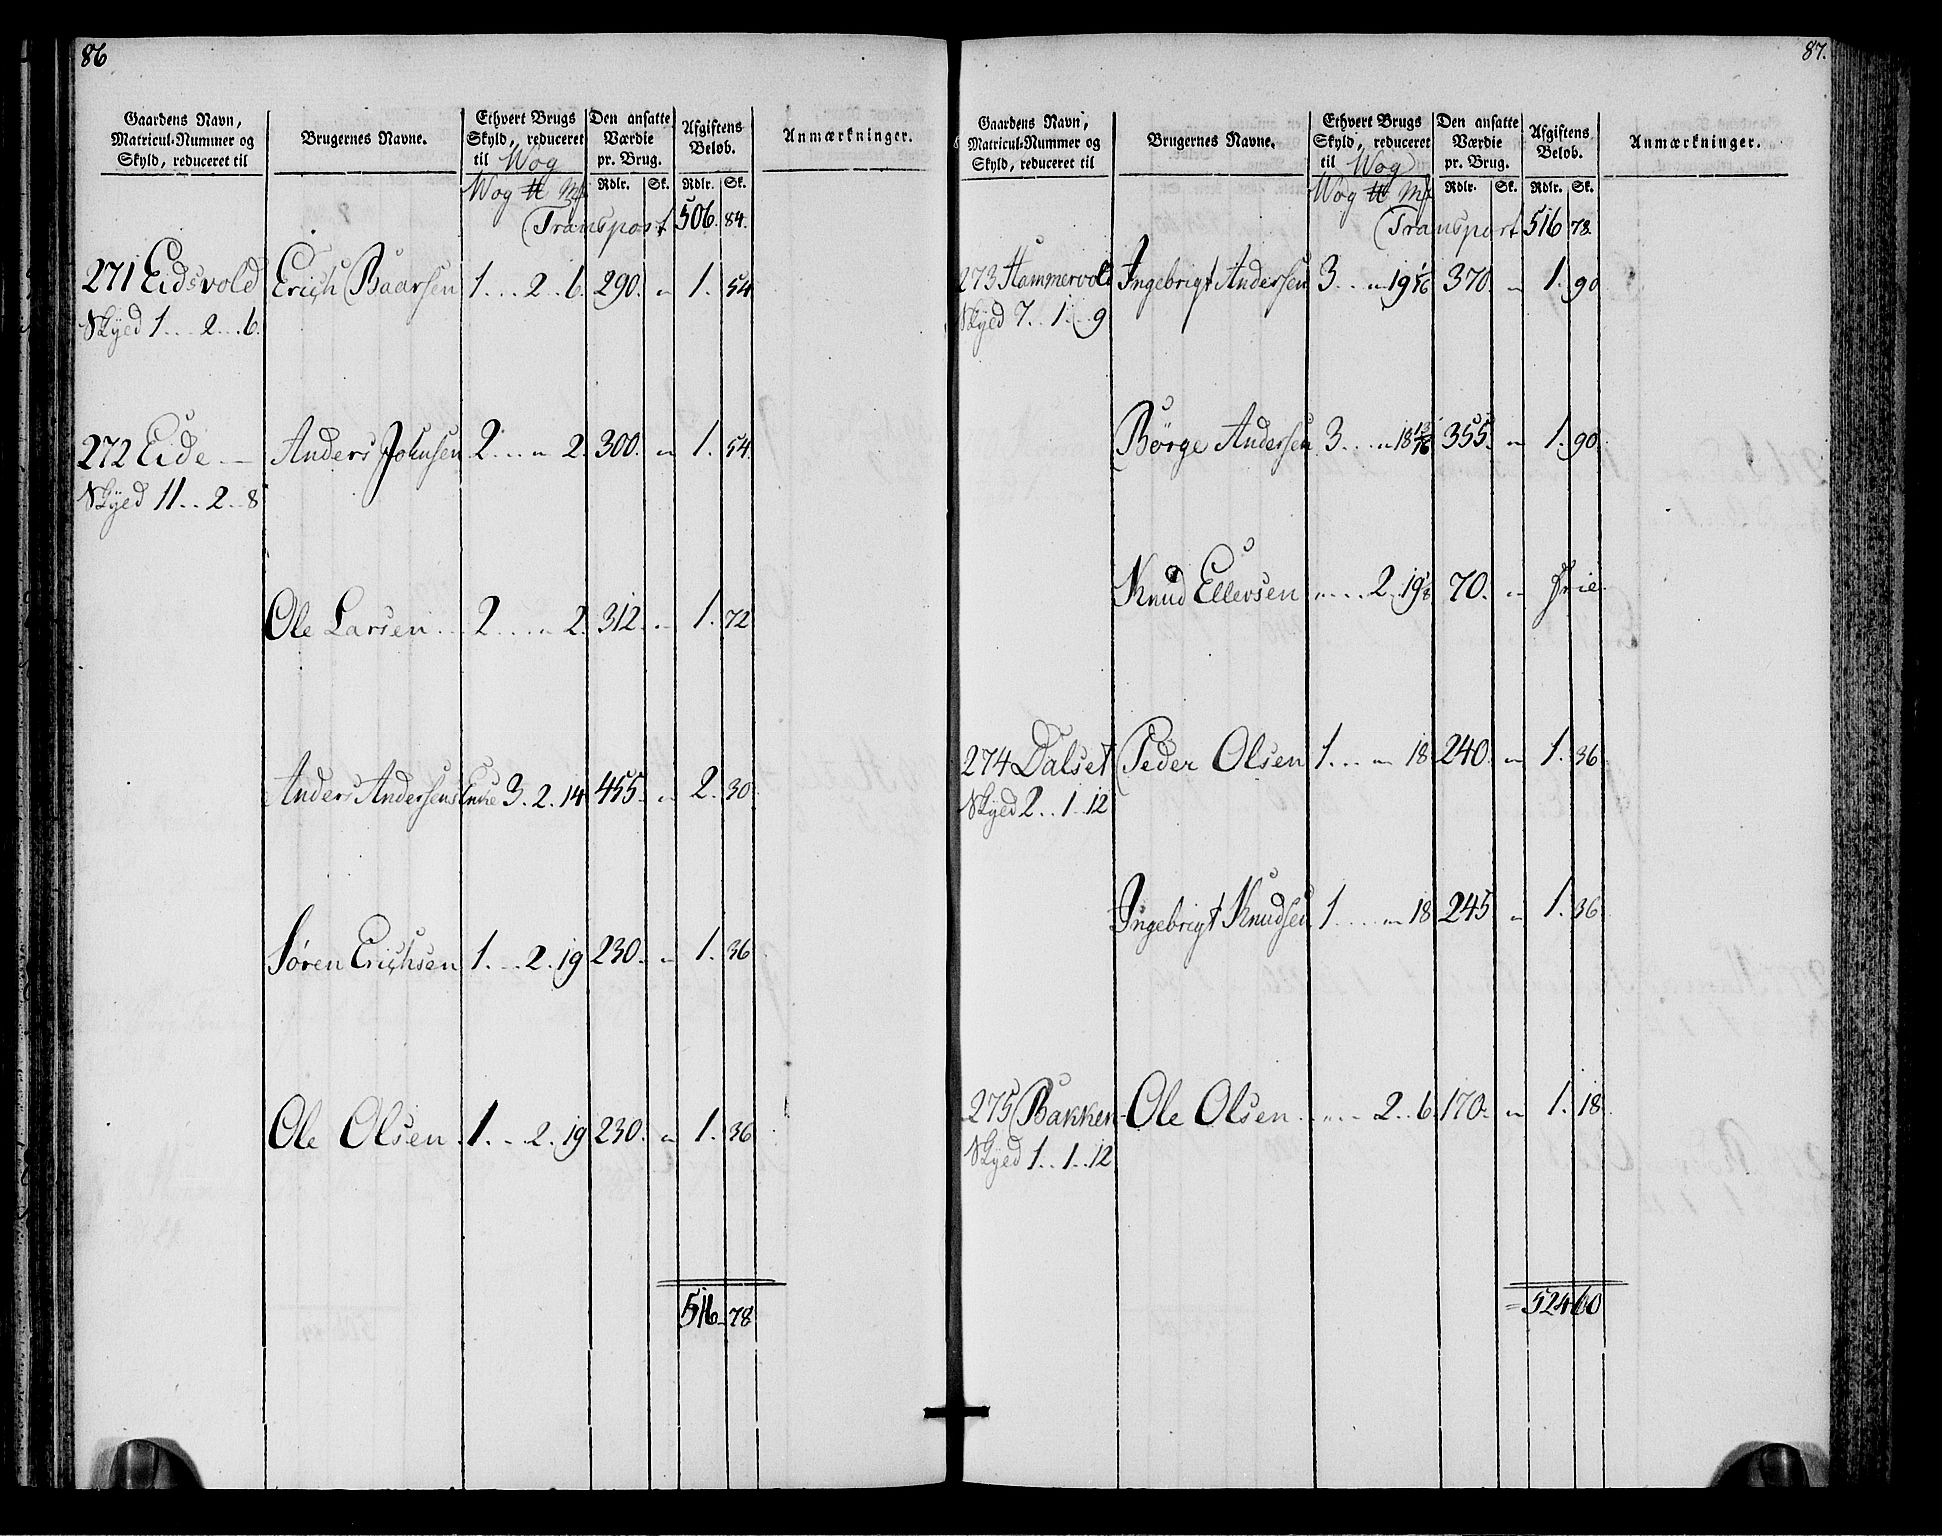 86
Gaardens Navn, Matricul-Nummer og Skyld, reduceret til
Brugernes Navne.
Ethvert Brugs Skyld, reduceret til Wog
Den ansatte Værdie pr. Brug.
Afgiftens Beløb.
Anmærkninger.
Wog ℔ Mk Rdlr. Sk. Rdlr. Sk.
Transport 506. 84.
271 Eidsvold Erich Baarsen 1 . . . 2 . . 6. 290. „ 1. 54
Skyed 1 . . . 2 . . . 6.
272 Eide — Anders Johnsen 2 . . . „ 2. 300. „ 1. 54.
Skyed 11 . . . 2 . . 8
Ole Larsen . . . 2 . . . . „ 2. 312. „ 1. 72
Anders Andersens Enke 3. 2. 14 455. „ 2. 30
Søren Erichsen 1. . . . 2. 19 230. „ 1. 36
Ole Olsen 1. . . 2. 19 230. „ 1. 36
516. 78
87.
Gaardens Navn, Matricul-Nummer og Skyld, reduceret til
Brugernes Navne.
Ethvert Brugs Skyld, reduceret til Wog
Den ansatte Værdie pr. Brug.
Afgiftens Beløb.
Anmærkninger.
Wog ℔ Mk Rdlr. Sk. Rdlr. Sk.
Transport 516 78.
273 Hammervold Ingebrigt Andersen 3 . . . „ 19 1/16 370. „ 1. 90
Skyed 7 . . 1 . . 9
Børge Andersen 3 . . . „ 18 13/16 355. „ 1. 90.
Knud Ellevsen „ . . . 2. 19 1/8 70. „ frie.
274 Dalset Peder Olsen 1 . . . „ 18. 240. „ 1. 36
Skyed 2 . . 1 . . 12
Ingebrigt Knudsen 1 . . . . „ 18 245 „ 1. 36
275 Bakken Ole Olsen „ . . . 2 . . 6. 170. „ 1. 18.
Skyed 1 . . 1 . . 12
524 60